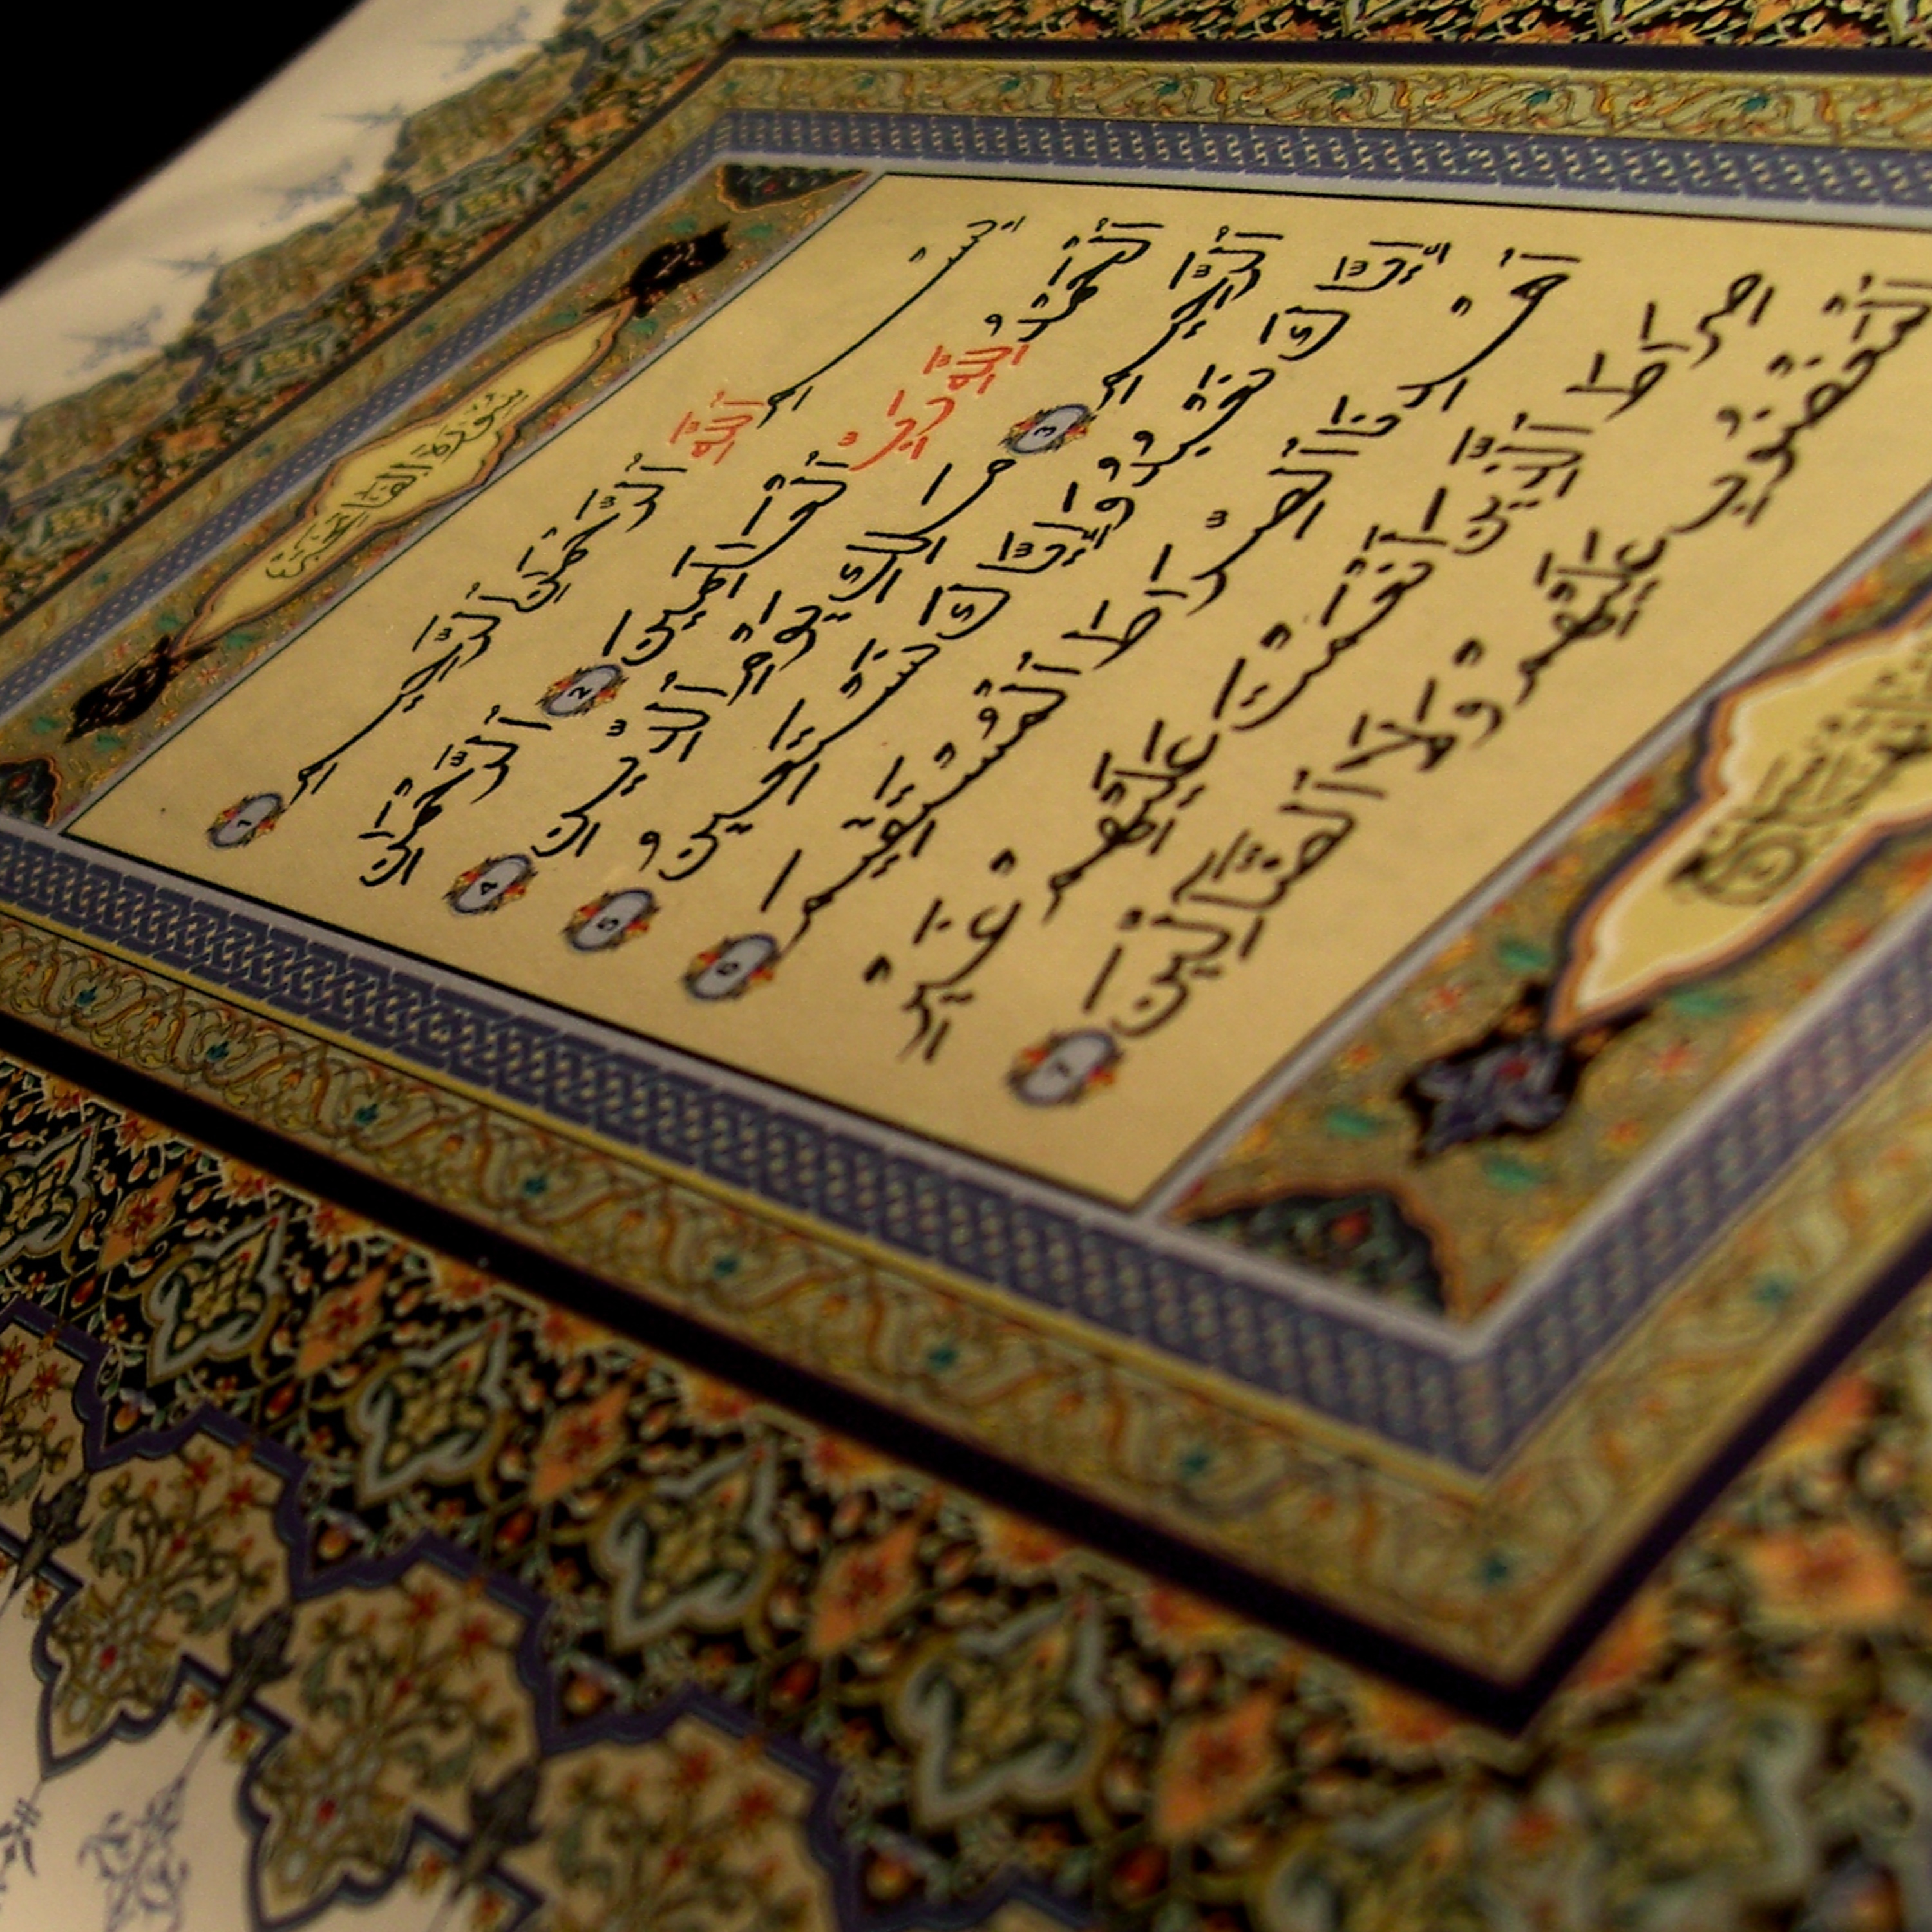 سُورَةُ الفَاتِحَةِ
بِسْمِ اللَّهِ الرَّحْمَٰنِ الرَّحِيمِ 1
الْحَمْدُ لِلَّهِ رَبِّ الْعَالَمِينَ 2 الرَّحْمَٰنِ
الرَّحِيمِ 3 مَالِكِ يَوْمِ الدِّينِ 4
إِيَّاكَ نَعْبُدُ وَإِيَّاكَ نَسْتَعِينُ 5
اهْدِنَا الصِّرَاطَ الْمُسْتَقِيمَ 6
صِرَاطَ الَّذِينَ أَنْعَمْتَ عَلَيْهِمْ غَيْرِ
الْمَغْضُوبِ عَلَيْهِمْ وَلَا الضَّالِّينَ 7